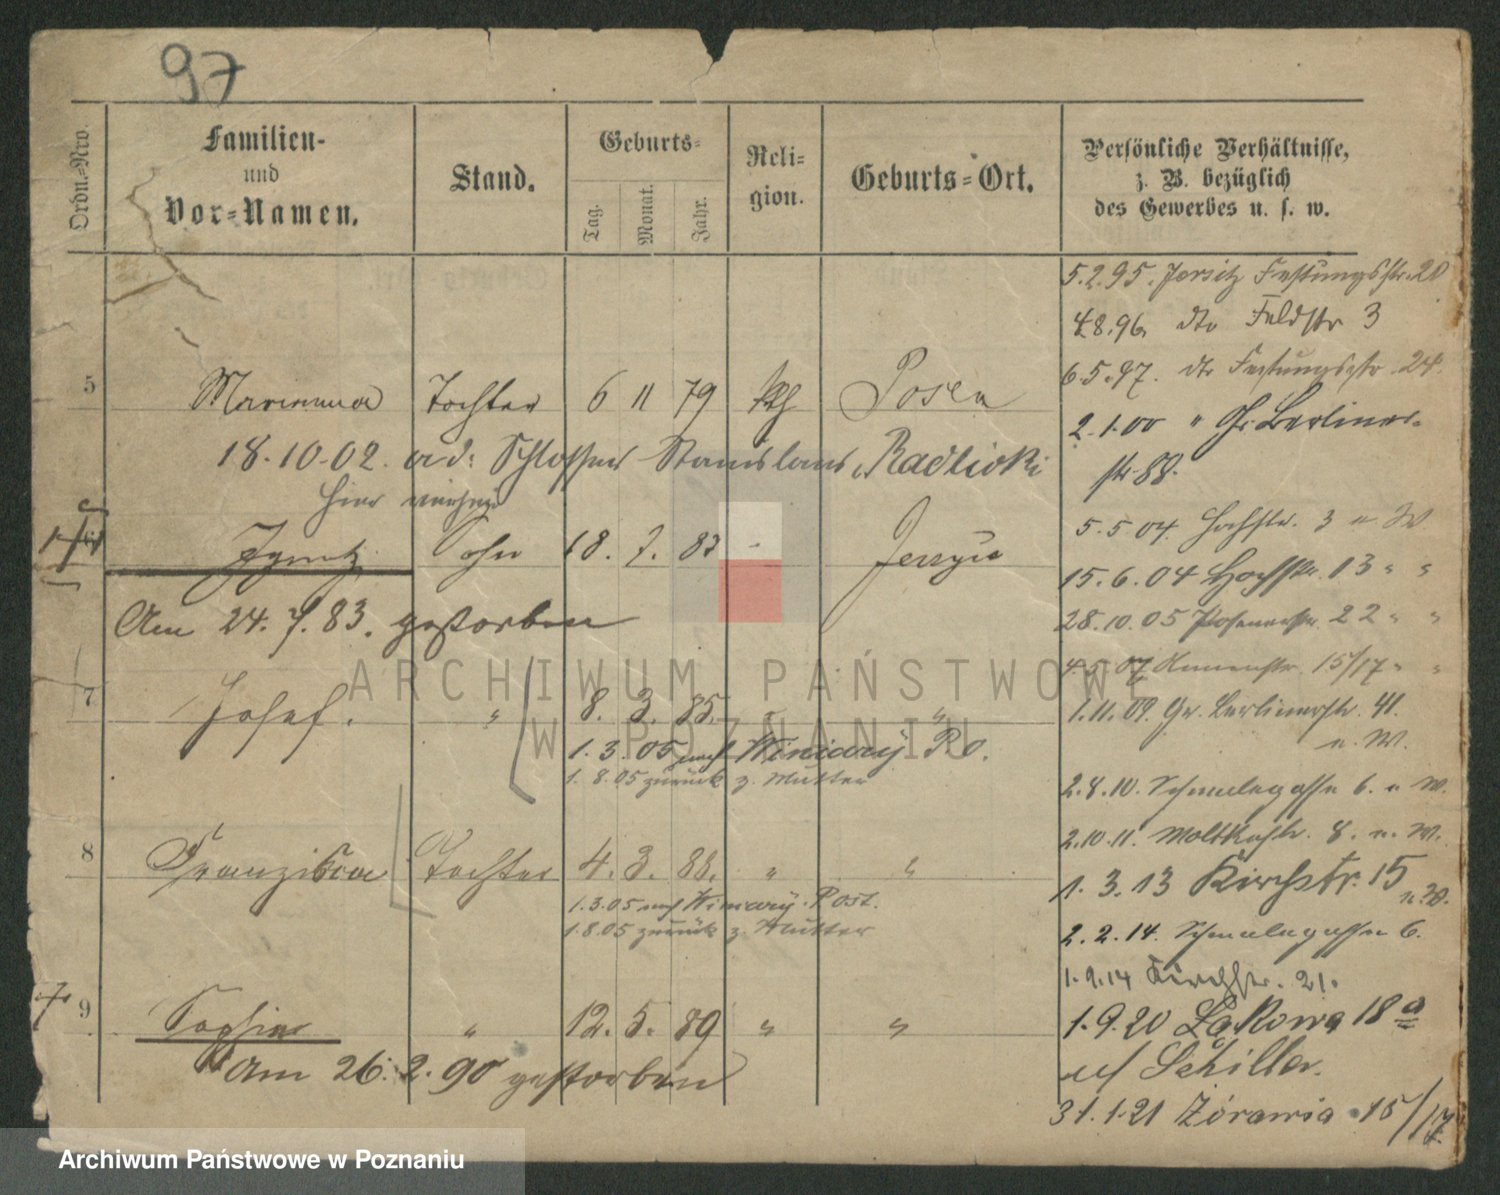 97
Ordn.=Nro.
Familien-
und
Vor=Namen.
Stand.
Geburts=
Tag.
Monat.
Jahr.
Reli=
gion.
Geburts=Ort.
Persönliche Verhältnisse,
z. B. bezüglich
des Gewerbes u. s. w.
5 Marianna Tochter 6 11 79 kth Posen
18.10.02. a d: Schlosser Stanislaus Radlicki
hier
Ignatz Sohn 18. 7. 83 - Jerzyce
Am 24. 7. 83. gestorben
7 Josef. " 8. 3. 85. " "
1.3.05 nach Winiary P o.
1.8.05 zurück z. Mutter
8 Franziska Tochter 4. 3. 88. " "
1.3.05 nach Winiary. Post.
1.8.05 zurück z. Mutter
9 Sophie " 12. 5. 89 " "
Am 26.2.90 gestorben
5.2.95. Jersitz Festungsstr. 20
4.8.96. dto Feldstr 3
6.5.97. dto Festungsstr. 24.
2.1.00 " Gr. Berliner-
str 88.
5.5 04. Hochstr. 3 u. W.
15.6.04 Hochstr. 13 " "
28.10.05 Posenerstr. 22 " "
4.5.07 15/17 " "
1.11.09. Gr. Berlinerstr. 41.
u. W.
2.8.10. Schmalegasse 6. u W.
2.10.11. Moltkestr. 8. u. W.
1.3.13 Kirchstr. 15
u. W.
2.2.14. Schmalegasse 6.
1.9.14 Kirchstr. 21.
1.9.20 Łąkowa 18 a
b/ Schiller.
31.1.21 Żórawia 15/17
ARCHIWUM PAŃSTWOWE
W POZNANIU
Archiwum Państwowe w Poznaniu